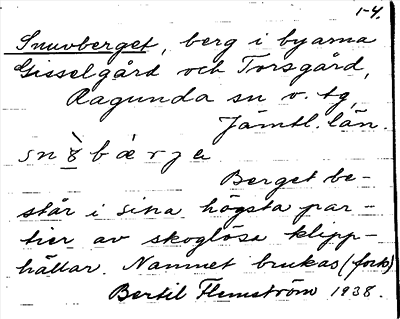 1-4.
Snuvberget, berg i byarna
Gisselgård och Torsgård,
Ragunda sn o. tg,
Jämtl. län.
Berget be-
står i sina högsta par-
tier av skoglösa klipp-
hällar. Namnet brukas (forts)
Bertil Flemström 1938.